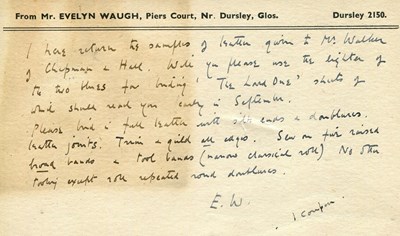 From Mr. EVELYN WAUGH, Piers Court, Nr. Dursley, Glos. Dursley 2150.
I here return the samples of leather given to Mr Walker
of Chapman & Hall. Will you please use the lighter of
the two blues for binding 'The Loved One' sheets of
which should reach you early in September.
Please bind in full leather with silk ends & doublures.
leather joints. Trim & guild all edges. Sew on five raised
broad bands & tool bands (narrow classical roll) No other
tooling except roll repeated round doublures.
E. W.
1 coupon